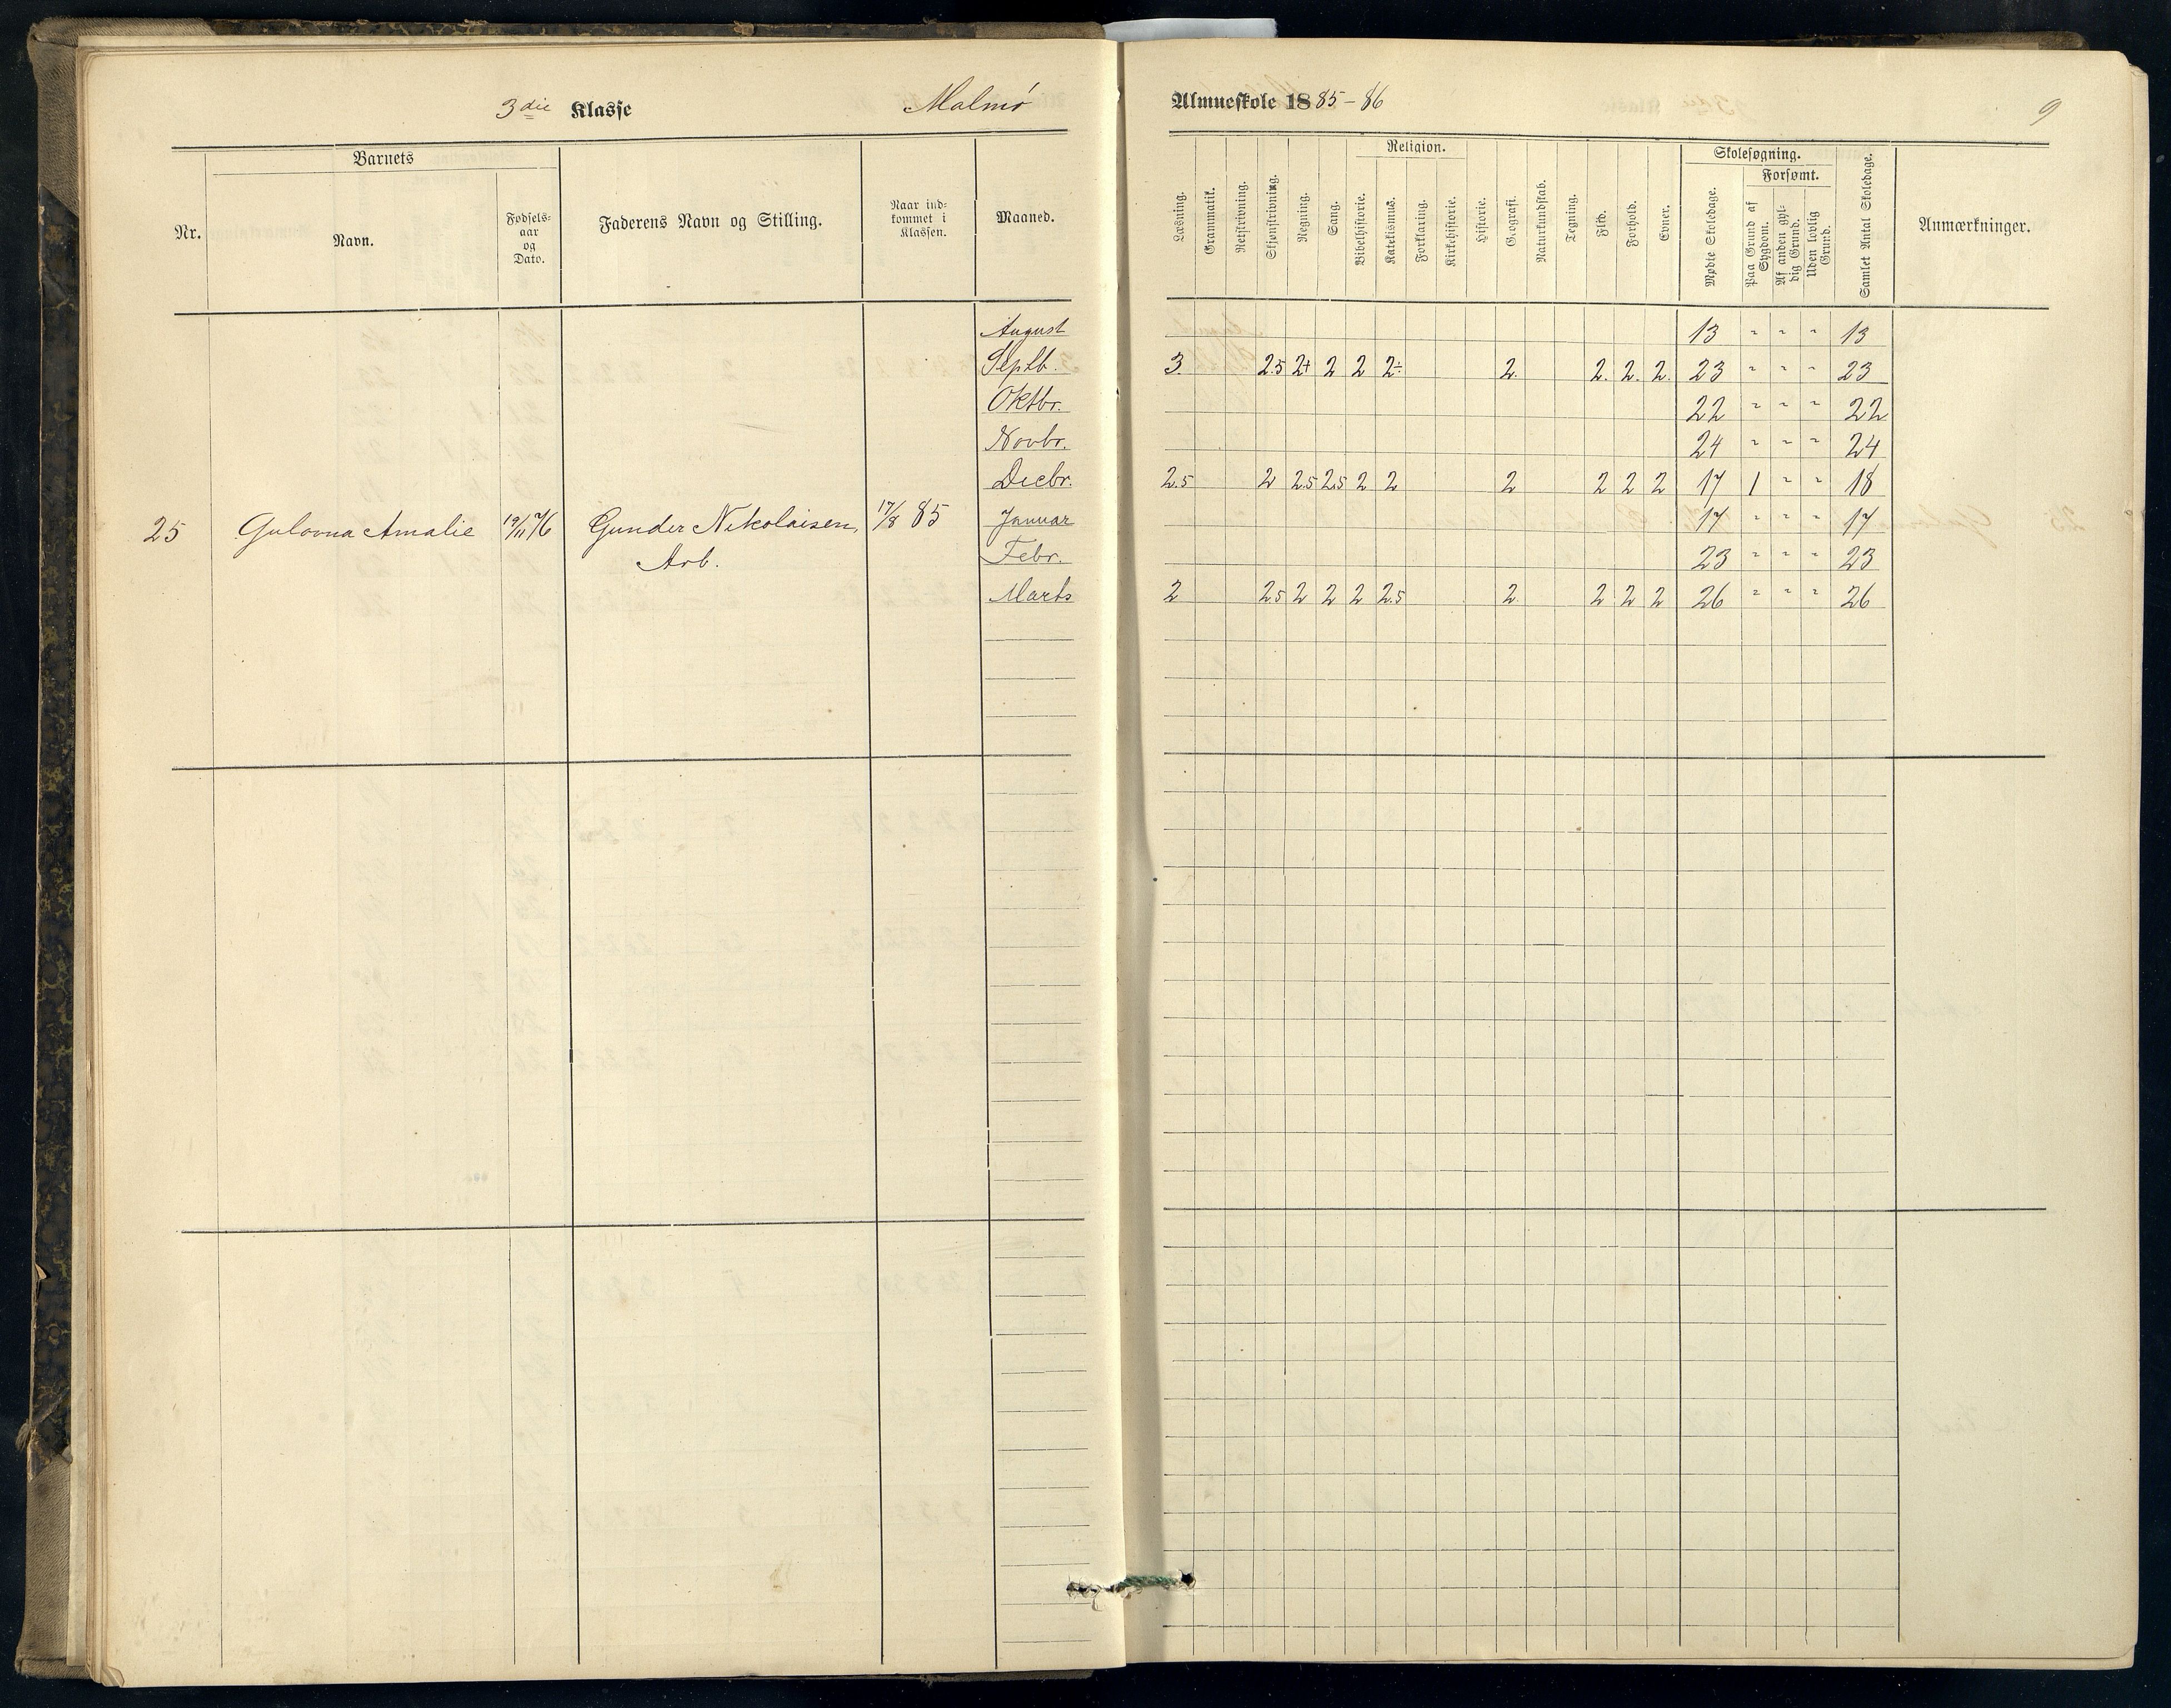 3die Klasse Malmö Almueskole 1885-86 9
Nr. Barnets Navn. Fødsels-aar og Dato. Faderens Navn og Stilling. Naar ind-kommet i Klassen. Maaned. Læsning. Grammatik. Retskrivning. Skjønskrivning. Regning. Sang. Religion. Bibelhistorie. Katekismus. Forklaring. Kirkehistorie. Historie. Geografi. Naturkundskab. Tegning. Flid. Forhold. Evner. Skolesøgning. Mødte Skoledage. Forsømt. Paa Grund af Sygdom. Af anden gyl-dig Grund. Uden lovlig Grund. Samlet Antal Skoledage. Anmærkninger.
August 13 " " " 13
Septb. 3. 2.5 2+ 2 2 2÷ 2. 2. 2. 2. 23 " " " 23
Oktbr. 22 " " " 22
Novbr. 24 " " " 24
Decbr. 2.5 2 2.5 2.5 2 2 2 2 2 2 17 1 " " 18
25 Gulovna Amalie 19/11 76 Gunder Nikolaisen, 17/8 85 Januar 17 " " " 17
Arb. Febr. 23 " " " 23
Marts 2 2.5 2 2 2 2.5 2. 2 2 2 26 " " " 26